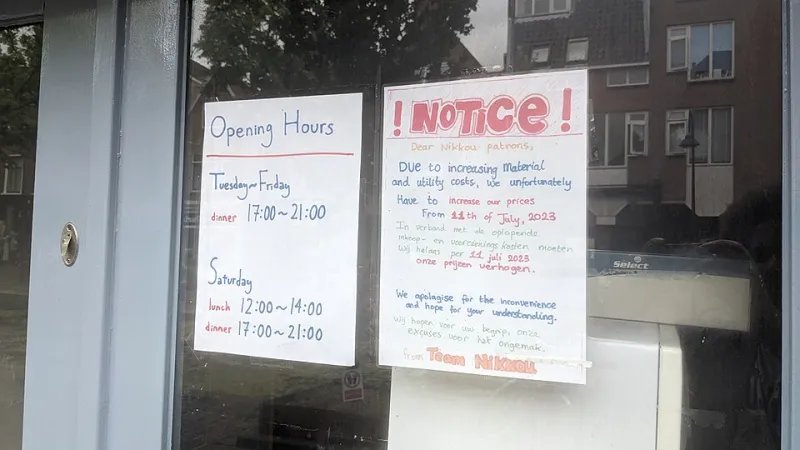 Opening Hours
Tuesday~Friday
dinner 17:00~21:00
Saturday
lunch 12:00~14:00
dinner 17:00~21:00
! NOTICE !
Dear Nikkou patrons,
Due to increasing Material
and utility costs, we unfortunately
Have to increase our prices
From 11th of July, 2023
In verband met de oplopende
inkoop- en voorzienings kosten moeten
Wij helaas per 11 juli 2023
onze prijzen verhogen.
We apologise for the inconvenience
and hope for your understanding.
Wij hopen voor uw begrip, onze
excuses voor het ongemak.
from Team Nikkou
Select